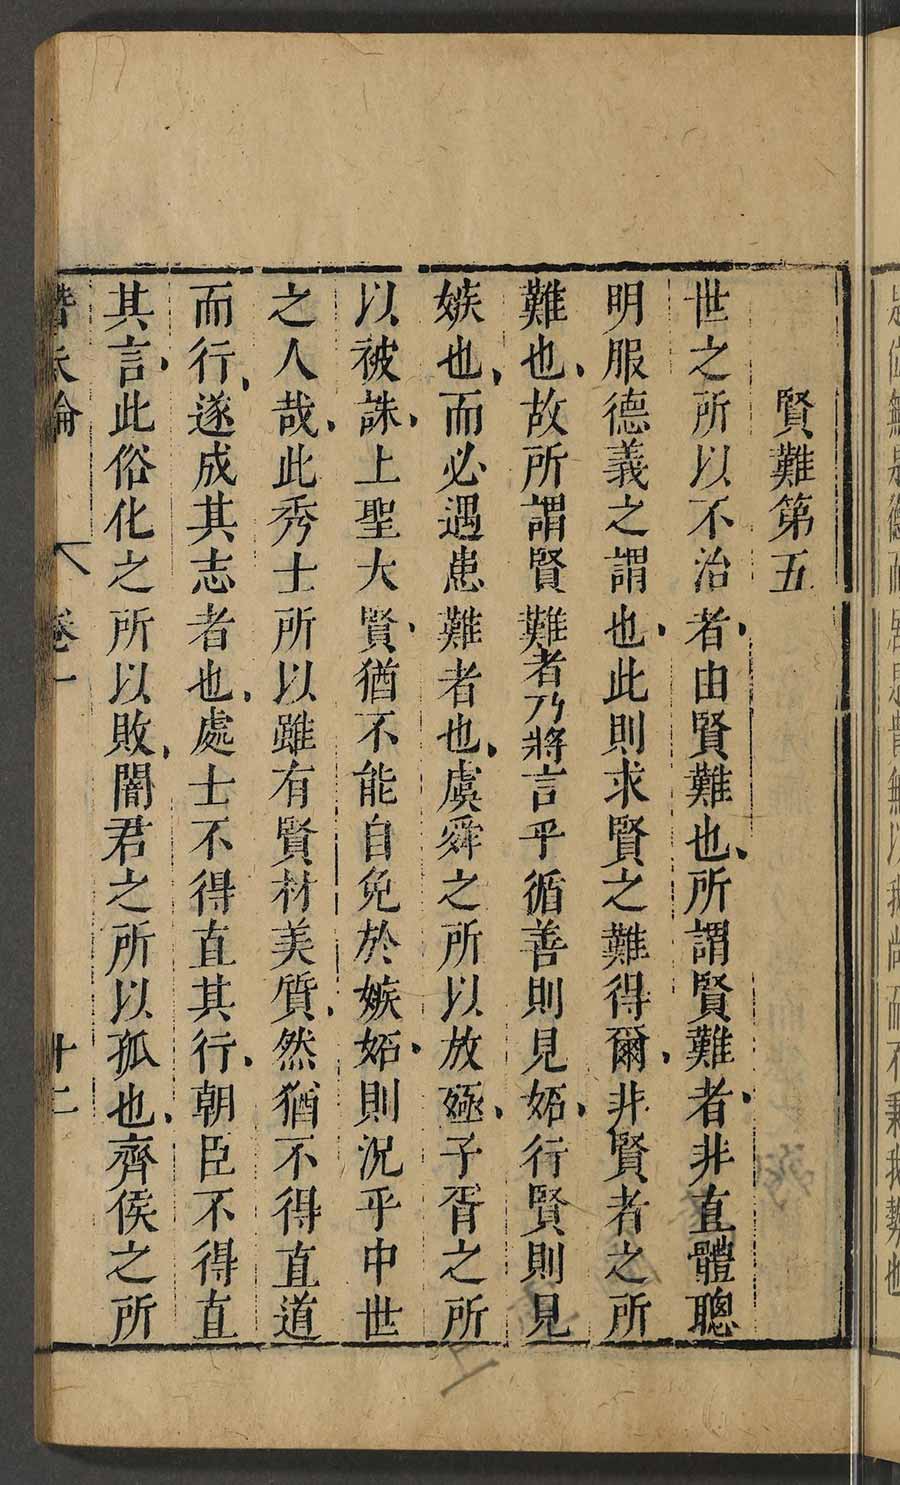 賢難第五
世之所以不治者由賢難也所謂賢難者非直體聰
明服德義之謂也此則求賢之難得爾非賢者之所
難也故所謂賢難者乃將言乎循善則見妬行賢則見
嫉也而必遇患難者也虞舜之所以放殛子胥之所
以被誅上聖大賢猶不能自免於嫉妬則況乎中世
之人哉此秀士所以雖有賢材美質然猶不得直道
而行遂成其志者也處士不得直其行朝臣不得直
其言此俗化之所以敗闇君之所以孤也齊侯之所
卷一
十二